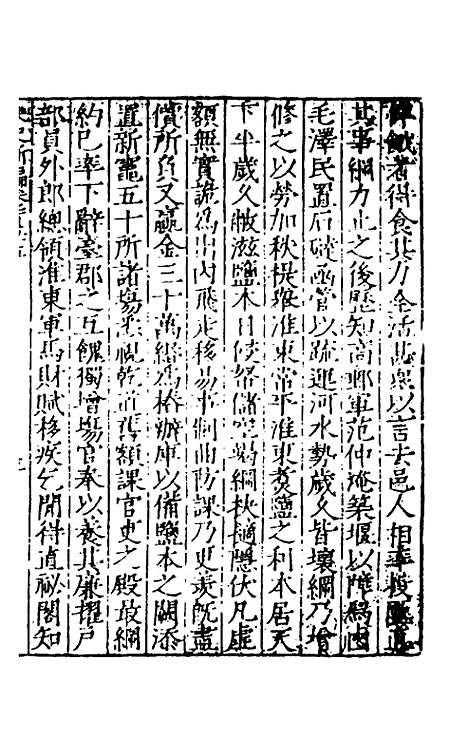 餓者得食其力全活甚眾以言去邑人相率投匭直
其事綱力止之後歷知高郵軍范仲淹築堰以障舄鹵
毛澤民置石䃮函管以疏運河水勢歲久皆壞綱乃增
修之以勞加秩提舉淮東常平淮東煑鹽之利本居天
下半歲久敝滋鹽本日侵帑儲空竭綱抉擿隱伏凡虛
額無實詭為出內飛走移易事制曲防課乃更羨既盡
償所負又贏金三十萬緡為樁辦庫以備鹽本之闕添
置新竈五十所諸場悉視乾道舊額課官吏之殿最綱
約己率下辭臺郡之互餽獨增場官奉以養其廉擢戶
部員外郎總領淮東軍馬財賦移疾乞閒得直祕閣知